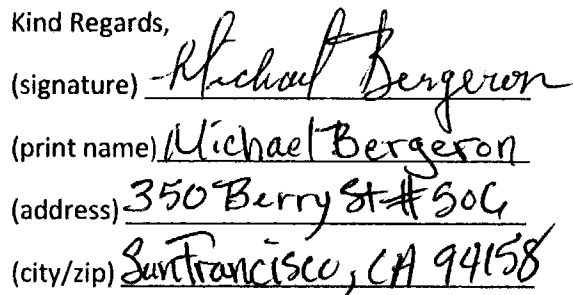 Kind Regards,
(signature) Michael Bergeron
(print name) Michael Bergeron
(address) 350 Berry St #506
(city/zip) San Francisco, CA 94158